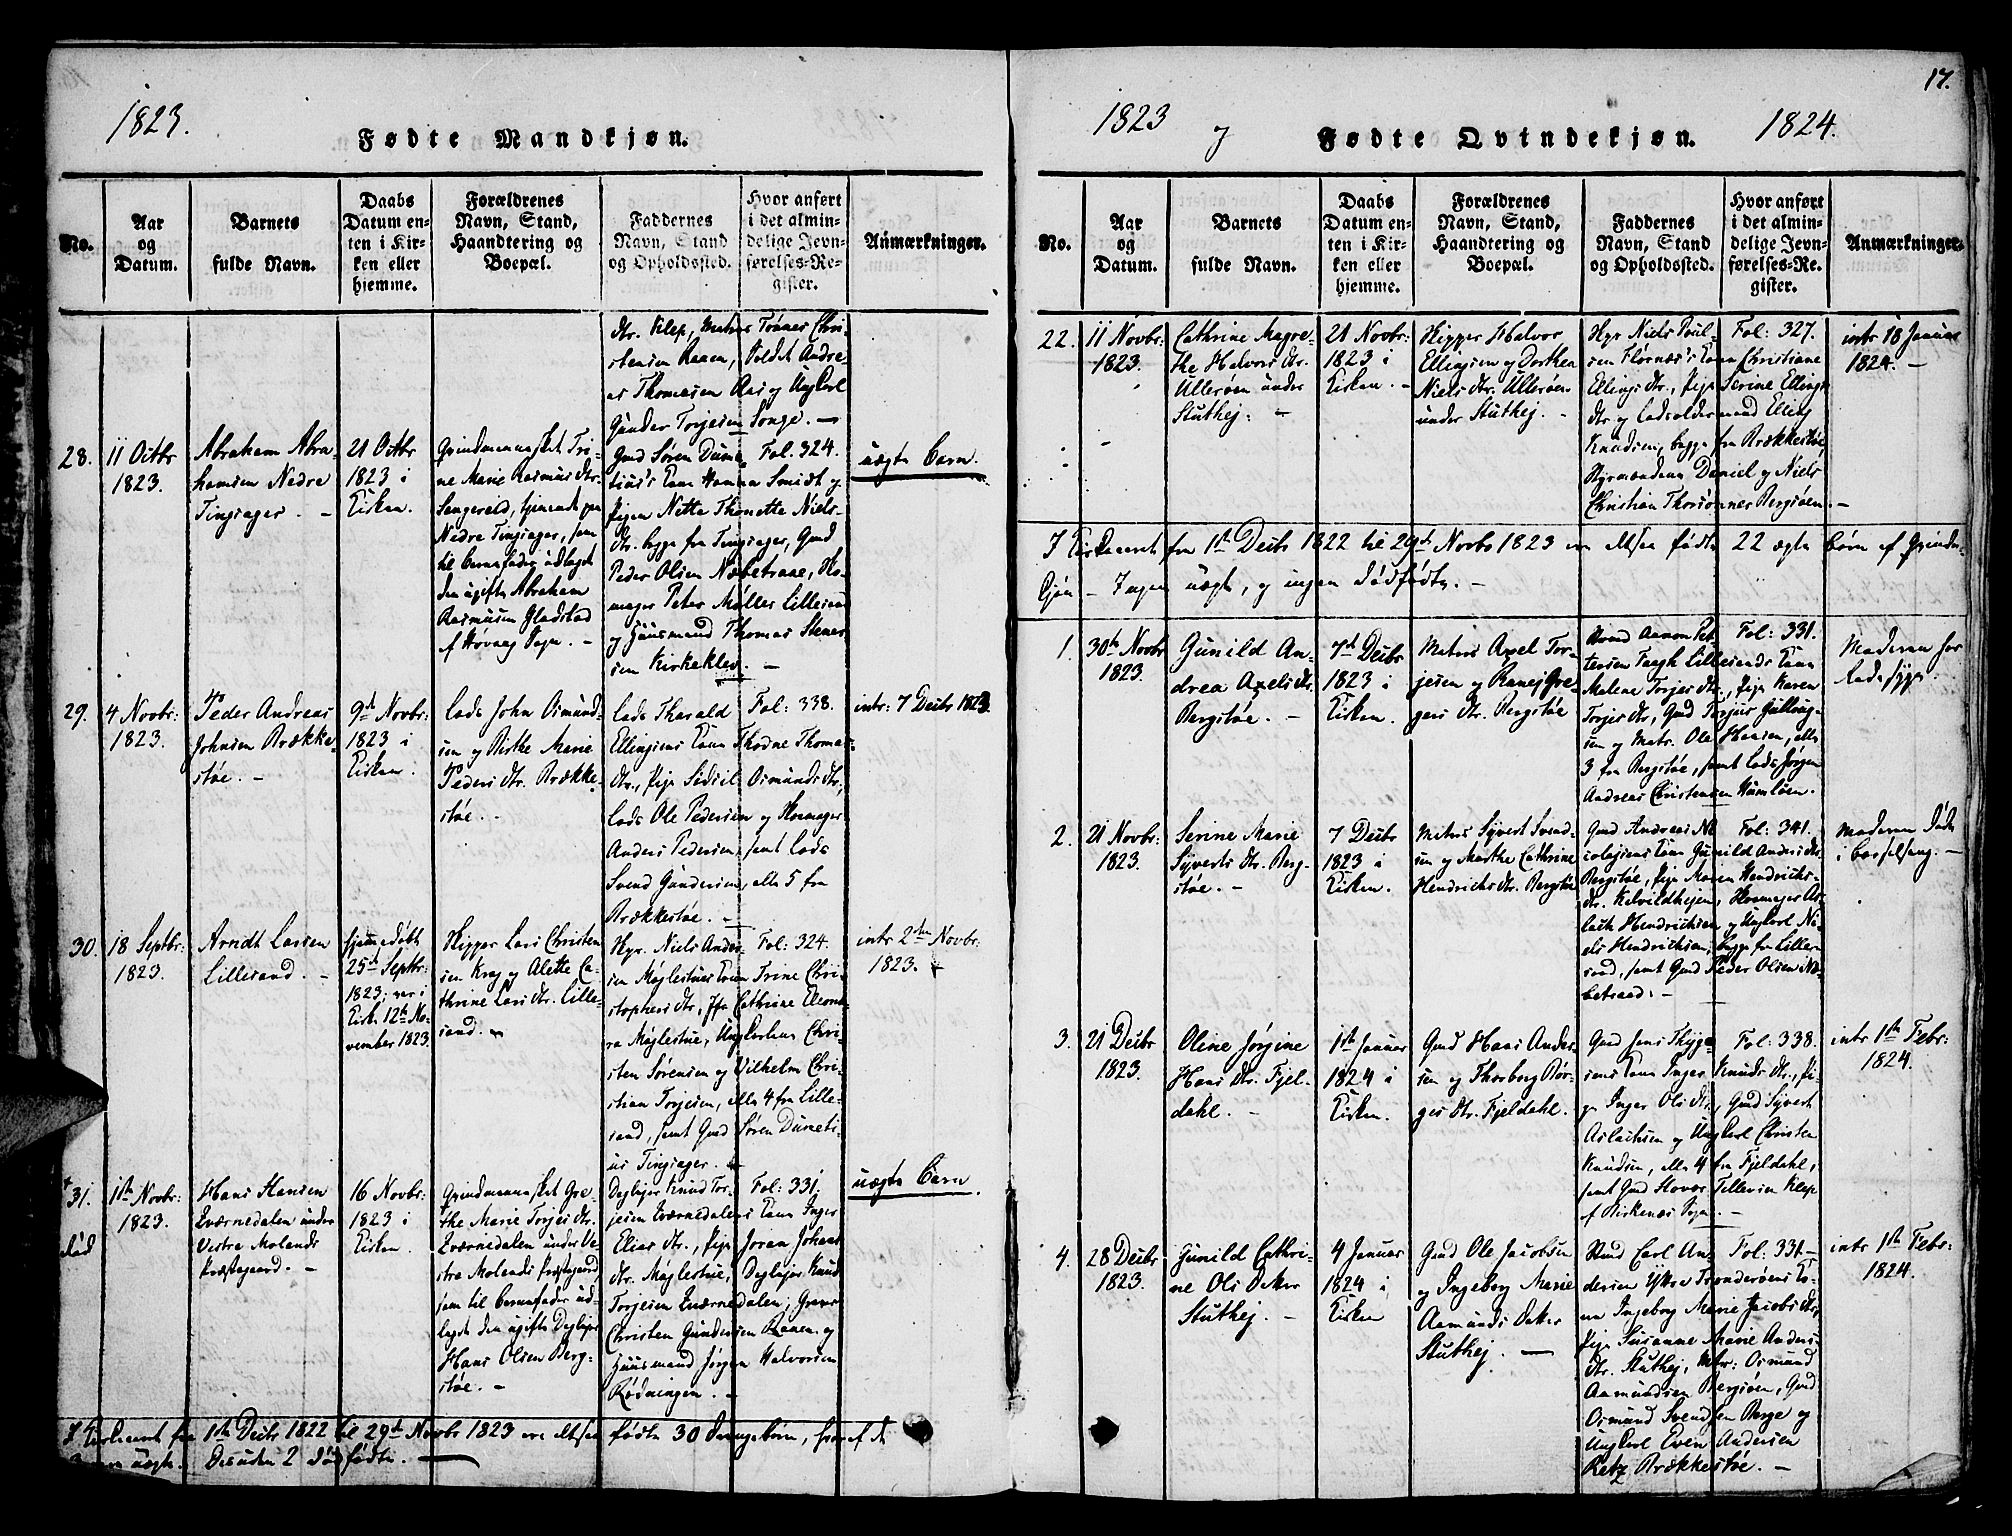 1823.
Fødte Mandkjøn.
No.
Aar
og
Datum.
Barnets
fulde Navn.
Daabs
Datum en-
ten i Kir-
ken eller
hjemme.
Forældrenes
Navn, Stand,
Haandtering og
Boepæl.
Faddernes
Navn, Stand
og Opholdssted.
Hvor anført
i det almin-
delige Jevn-
førelses-Re-
gister.
Anmærkninger.
dtr. Klep, Matros Tønnes Chri-
stensen Raaen, Soldt Andre-
as Thomesen Aas og Ungkarl
Gunder Torjesen Songe. —
28.
11 Octbr
1823.
Abraham Abra-
hamsen Nedre
Tingsager. —
21 Octbr
1823 i
Kirken.
Qvindmennesket Tri-
ne Marie Rasmus dtr.
tjenende paa
Nedre Tingsager, som
til barnefader udlagde
den ugifte Abraham
Rasmusen Gladstad
af Høvaag Sogn. —
Gmd Søren Dume-
tius's Kone Hanna Smidt og
Pigen Nette Thonette Niels-
dtr. begge fra Tingsager, Gmd
Peder Olsen Næbetraae, Sko-
mager Peter Møller Lillesand
og Huusmand Thomas Stenes-
sen Kirkeklev. —
Fol. 324.
uægte Barn.
29.
4 Novbr:
1823.
Peder Andreas
Johnsen Brække-
støe. —
9de Novbr:
1823 i
Kirken.
Lods John Osmund-
sen og Birthe Marie
Peders dtr. Brække-
støe. —
Lods Tharald
Ellingsens Kone Thodne Thomas-
dtr., Pige Sidsel Osmunds dtr.,
Lods Ole Pedersen og Skomager
Anders Pedersen, samt Lods
Svend Gundersen, alle 5 fra
Brækkestøe. —
Fol: 338.
intr: 7 Decbr 1823.
30.
18 Septbr:
1823.
Arndt Larsen
Lillesand. —
hjemmedøbt
25de Septbr:
1823; var i
Kirk. 12te No-
vember 1823.
Skipper Lars Christen
sen Krag og Alette Ca-
thrine Lars dtr. Lille-
sand. —
Skpr. Niels Anders-
sen Møglestues Kone Trine Chri-
stophers dtr., Jfr Cathrine Eleono-
ra Møglestue, Ungkarlene Chri-
sten Sørensen og Vilhelm Chri-
stian Torjesen, alle 4 fra Lille-
sand, samt Gmd Søren Dumeti-
us Tingsager. —
Fol: 324.
intr 2den Novbr:
1823. —
31.
død
1ste Novbr:
1823.
Hans Hansen
Kværnedalen under
Vestre Molands
Præstegaard. —
16 Novbr:
1823 i
Kirken.
Qvindmennesket Gre-
the Marie Torjes dtr.
Kværnedalen under Ve-
stre Molands Præstegaard,
som til barnefader ud-
lagde den ugifte Dagleier
Hans Olsen Berg-
støe. —
Dagleier Knud Tor-
jesen Kværnedalens Kone Inger
Elias dtr., Pige Joran Johans
dtr. Møglestue, Dagleier Knud
Torjesen Kværnedalen, Graver
Christen Gundersen Raaen og
Huusmand Jørgen Halvorsen
Rødningen. —
Fol: 331.
uægte Barn.
I Kirkeaaret fra 1ste Decbr 1822 til 29de Novbr 1823 ere altsaa fødte 30 Drengebørn, hvoraf de
uægte. Desuden 2 dødfødte. —
17.
1823
og
Fødte Qvindekjøn.
1824.
No.
Aar
og
Datum.
Barnets
fulde Navn.
Daabs
Datum en-
ten i Kir-
ken eller
hjemme.
Forældrenes
Navn, Stand,
Haandtering og
Boepæl.
Faddernes
Navn, Stand
og Opholdssted.
Hvor anført
i det almin-
delige Jevn-
førelses-Re-
gister.
Anmærkninger.
22.
11 Novbr:
1823.
Cathrine Magre-
the Halvors dtr.
Ulleröen under
Stuthej: —
21 Novbr:
1823 i
Kirken. —
Skipper Halvor
Ellingsen og Dorthea
Niels dtr. Ulleröen
under Stuthej. —
Skpr Niels Poul-
sen Flørnæs's Kone Christiane
Ellings dtr., Pige Serine Ellings
dtr og Lodsoldermand Elling
Knudsen, begge fra Brækkestøe,
Styrmændene Daniel og Niels
Christian Thorsønner Bergsøen. —
Fol: 327.
intr 18 Januar
1824. —
I Kirkeaaret fra 1ste Decbr 1822 til 29de Novbr 1823 ere altsaa fødte 22 ægte børn af Qvinde-
Kjøn — Ingen uægte, og ingen dødfødte. —
1.
30te Novbr
1823.
Gunild An-
drea Axels dtr.
Bergstøe. —
7de Decbr
1823 i
Kirken.
Matros Axel Tor-
jesen og Ranej Gre-
gers dtr. Bergstøe
Strand Aanon Pet-
tersen Kaagh Lillesands Kone
Malene Torjes dtr., Pige Karen
Torjes dtr., Gmd Torjus Gulbug-
sen og Matr. Ole Hansen, alle
3 fra Bergstøe, samt Lods Jørgen
Andreas Christensen Humløen.
Fol: 331.
Moderen har
Radesyge.
2.
21 Novbr:
1823.
Serine Marie
Syverts dtr. Berg-
støe. —
7 Decbr
1823 i
Kirken.
Matros Syvert Svend-
sen og Marthe Cathrine
Hendrichs dtr. Bergstøe
Gmd Andreas Ni-
colajsens Kone Gunild Anders dtr
Bergstøe, Pige Maren Hendrichs-
dtr. Kalvildhejen, Skomager As-
lach Hendrichsen og Ungkarl Ni-
els Hendrichsen, begge fra Lille-
sand, samt Gmd Peder Olsen Næ-
betraae: —
Fol: 341.
Moderen døde
i barselseng. —
3.
21 Decbr
1823.
Oline Jørgine
Hans dtr. Fjel-
dahl. —
1ste Januar
1824 i
Kirken.
Gmd Hans Anders-
sen og Thorborg Bør-
ges dtr. Fjeldahl.
Gmd Jens Thyge-
sens Kone Inger Knuds dtr., Pi-
ge Inger Ols dtr., Gmd Syvert
Aslachsen og Ungkarl Christen
Knudsen, alle 4 fra Fjeldahl,
samt Gmd Stovar Tellevsen Klep
af Birkenæs Sogn. —
Fol: 338.
intr 1ste Febr:
1824.
4.
28 Decbr
1823.
Gunild Cathri-
ne Ols Datter
Stuthej. —
4 Januar
1824 i
Kirken
Gmd Ole Jacobsen
og Ingeborg Marie
Aamunds Datter
Stuthej. —
Strand Carl An-
dersen Ytre Tronderøens Ko-
ne Ingeborg Marie Jacobs dtr,
Pige Susanne Marie Anders-
dtr. Stuthej, Matr: Osmund
Aamundsen Bergsøen, Gmd
Osmund Svendsen Berge og
Ungkarl Even Andersen
Retz Brækkestøe. —
Fol: 331. —
intr 1ste Febr:
1824.